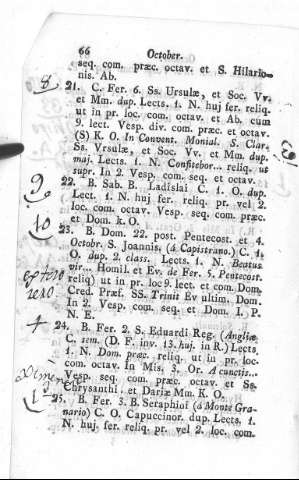 66 October.
seq. com. præc. octav. et S. Hilario-
nis. Ab.
8 21. C. Fer. 6. Ss. Ursulæ, et Soc. Vv.
et Mm. dup. Lects. 1. N. huj fer. reliq.
ut in pr. loc. com. octav. et Ab. cum
9. lect. Vesp. div. com. præc. et octav.
(S) K. O. In Convent. Monial. S. Clar.
Ss. Vrsulæ, et Soc. Vv. et Mm. dup.
maj. Lects. 1. N. Confitebor... reliq. ut
supr. In 2. Vesp. com. seq. et octav.
9 22. B. Sab. B. Ladislai C. 1. O. dup.
Lect. 1. N. huj fer. reliq. pr. vel 2.
loc. com. octav. Vesp. seq. com. præc.
et Dom. k. O.
10 23. B. Dom. 22. post. Pentecost. et 4.
Octobr. S. Joannis, (à Capistrano.) C. 1.
O. dup. 2. class. Lects. 1. N. Beatus
vir... Homil. et Ev. de Fer. 5. Pentecost.
reliq) ut in pr. loc 9. lect. et com. Dom.
Cred. Præf. SS. Trinit Ev ultim. Dom.
In 2. Vesp. com. seq. et Dom. I. P.
N. E.
4 24. B. Fer. 2. S. Eduardi Reg. (Angliæ)
C. sem. (D. F. inv. 13. huj. in R.) Lects.
1. N. Dom. præc. reliq. ut in pr. loc.
com. octav. In Mis. 3. Or. A cunctis...
Vesp. seq. com. præc. octav. et Ss.
Chrysanthi. et Dariæ Mm. K. O.
25. B. Fer. 3. B. Seraphini (à Monte Gra-
nario) C. O. Capuccinor. dup. Lects. 1.
N. huj. fer. reliq. pr. vel 2. loc. com.